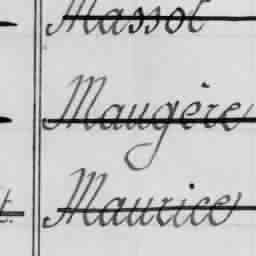 Massol
Maugère
Maurice